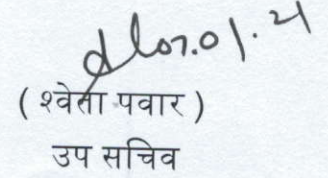 07.01.21
( श्वेता पवार )
उप सचिव